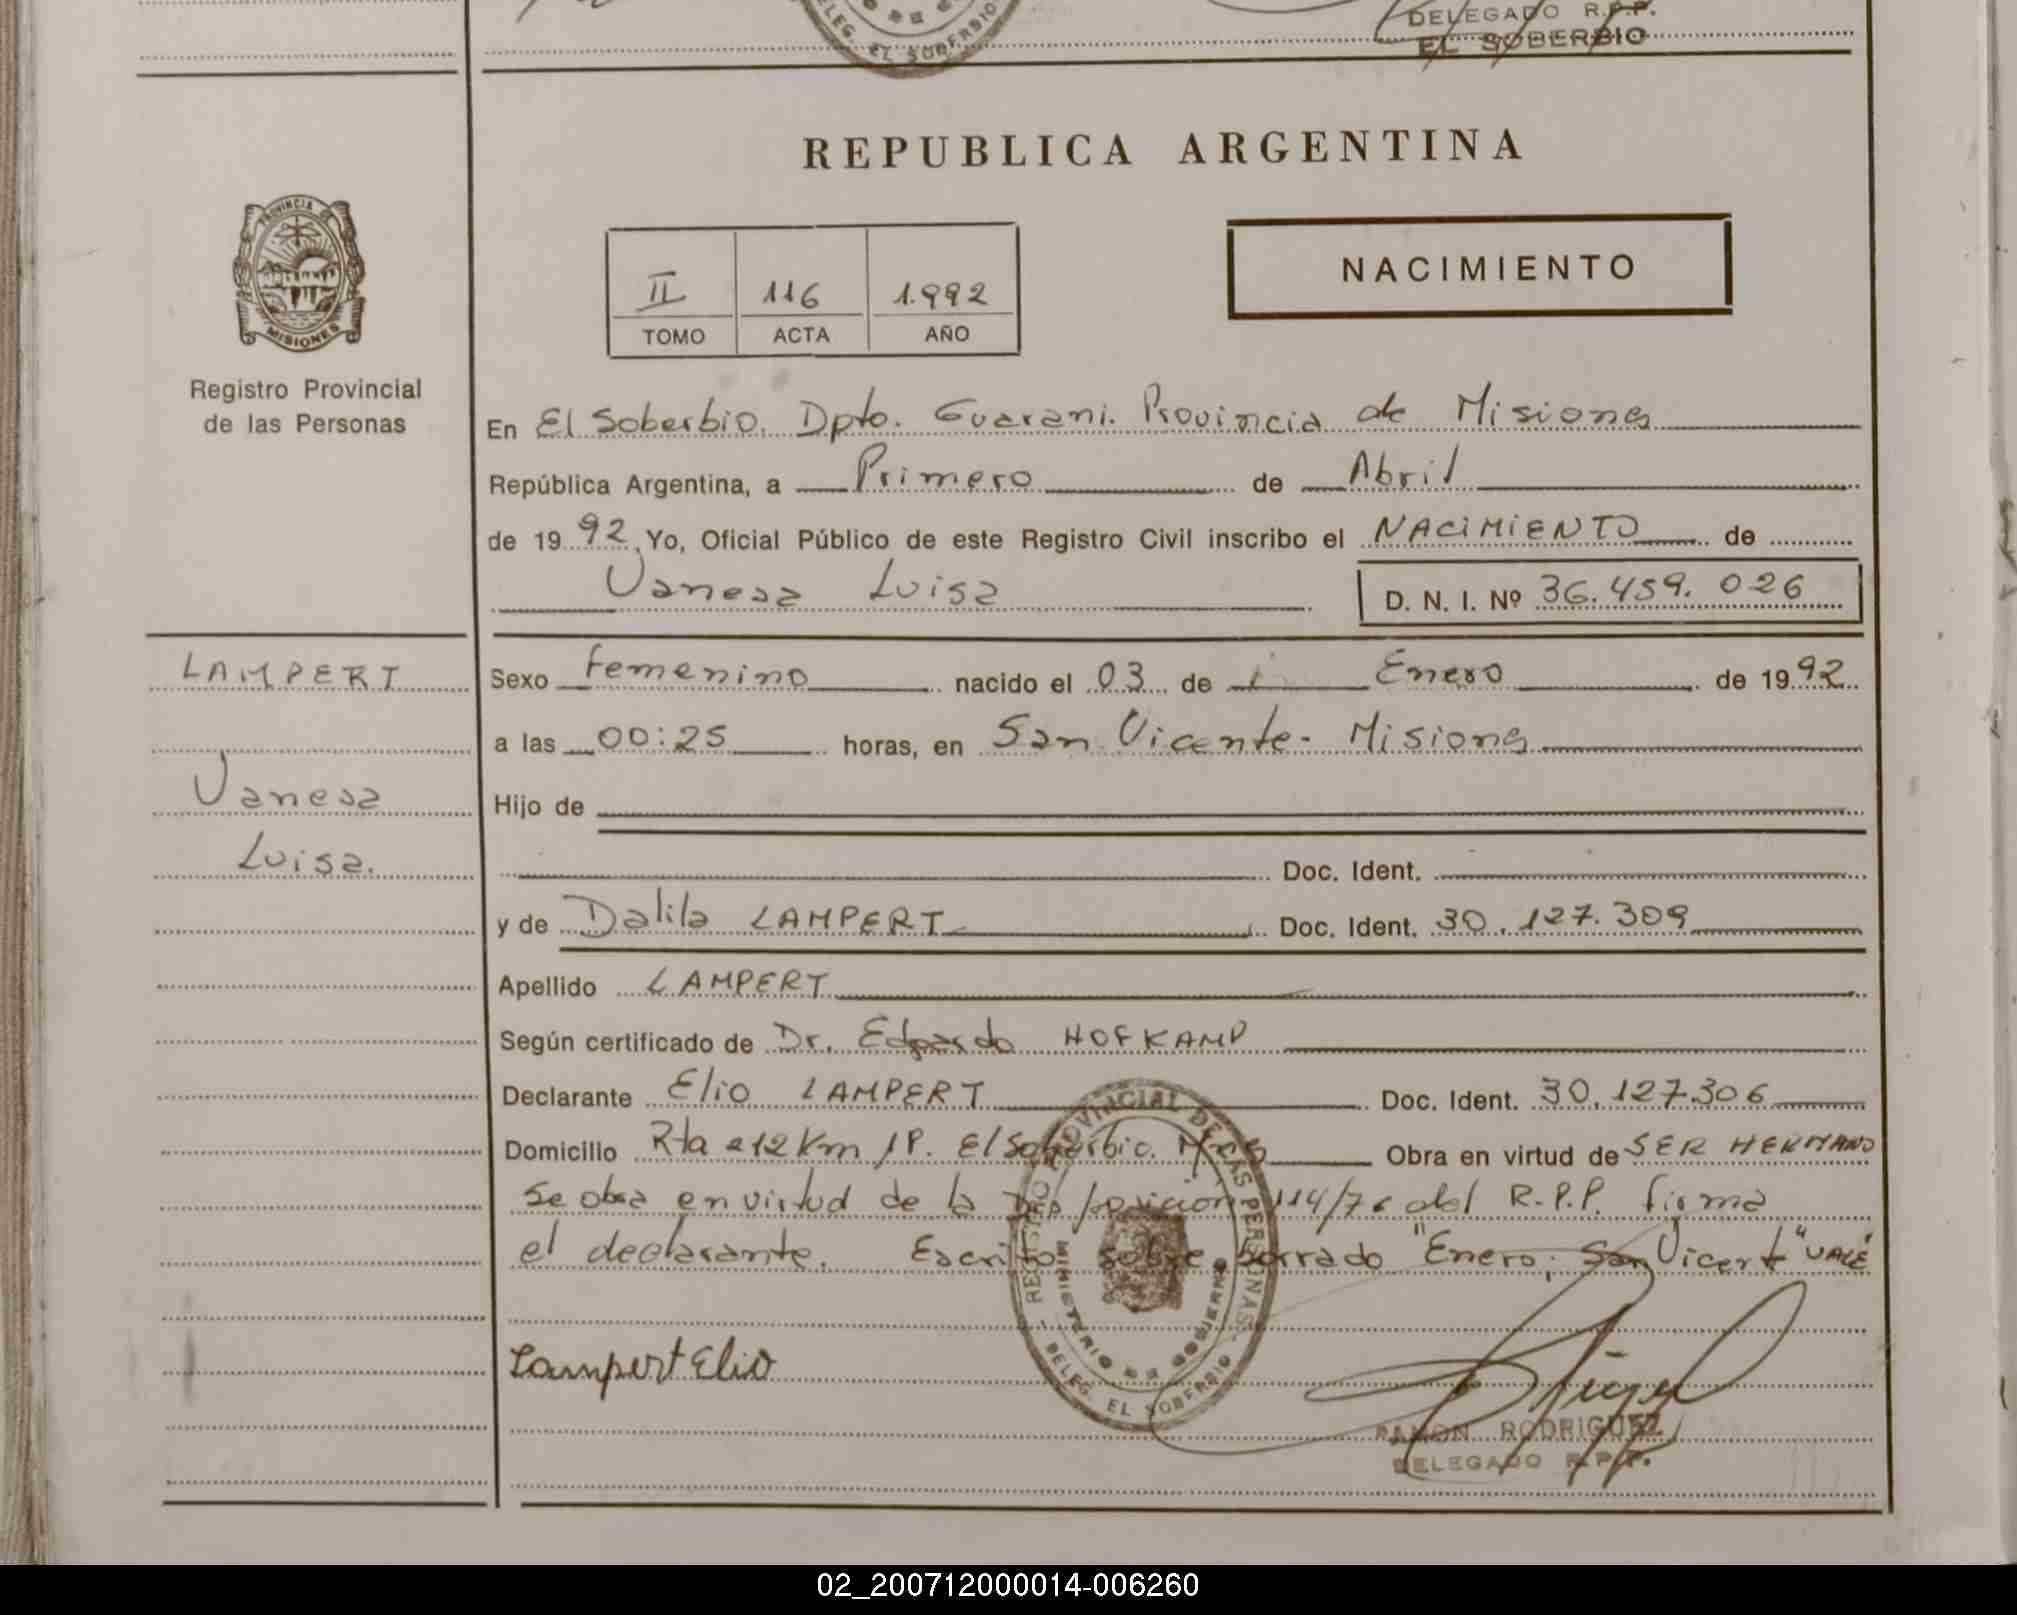 DELEG. EL SOBERBIO
DELEGADO R.P.P.
EL SOBERBIO
REPUBLICA ARGENTINA
PROVINCIA DE
MISIONES
Registro Provincial
de las Personas
II 116 1.992
TOMO ACTA AÑO
NACIMIENTO
En El Soberbio. Dpto. Guarani. Provincia de Misiones
República Argentina, a Primero de Abril
de 1992, Yo, Oficial Público de este Registro Civil inscribo el NACIMIENTO de
Vanesa Luisa D. N. I. Nº 36.459.026
LAMPERT
Vanesa
Luisa.
Sexo Femenino nacido el 03 de Enero de 1992
a las 00:25 horas, en San Vicente- Misiones
Hijo de
Doc. Ident.
y de Dalila LAMPERT Doc. Ident. 30.127.309
Apellido LAMPERT
Según certificado de Dr. Edgardo HOFKAMP
Declarante Elio LAMPERT Doc. Ident. 30.127.306
Domicilio Rta 212 Km 1P. El Soberbio. Mnes Obra en virtud de SER HERMANO
Se obra en virtud de la Disposicion 114/76 del R.P.P. firma
el declarante. Escrito sobre borrado "Enero, San Vicent" VALE
Lampert Elio
REGISTRO PROVINCIAL DE LAS PERSONAS
MINISTERIO DE GOBIERNO
DELEG. EL SOBERBIO
RAMON RODRIGUEZ
DELEGADO R.P.P.
02_200712000014-006260